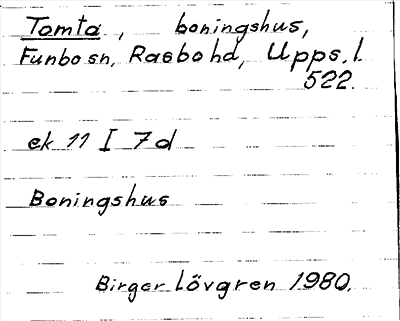 Tomta, boningshus,
Funbo sn, Rasbo hd, Upps. l.
522.
ek 11 I 7d
Boningshus
Birger Lövgren 1980.